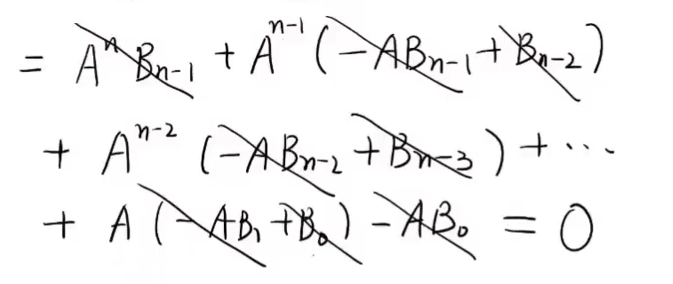 = AⁿBₙ₋₁ + Aⁿ⁻¹(-ABₙ₋₁+Bₙ₋₂)
+ Aⁿ⁻²(-ABₙ₋₂+Bₙ₋₃) + ⋯
+ A(-AB₁+B₀) - AB₀ = 0